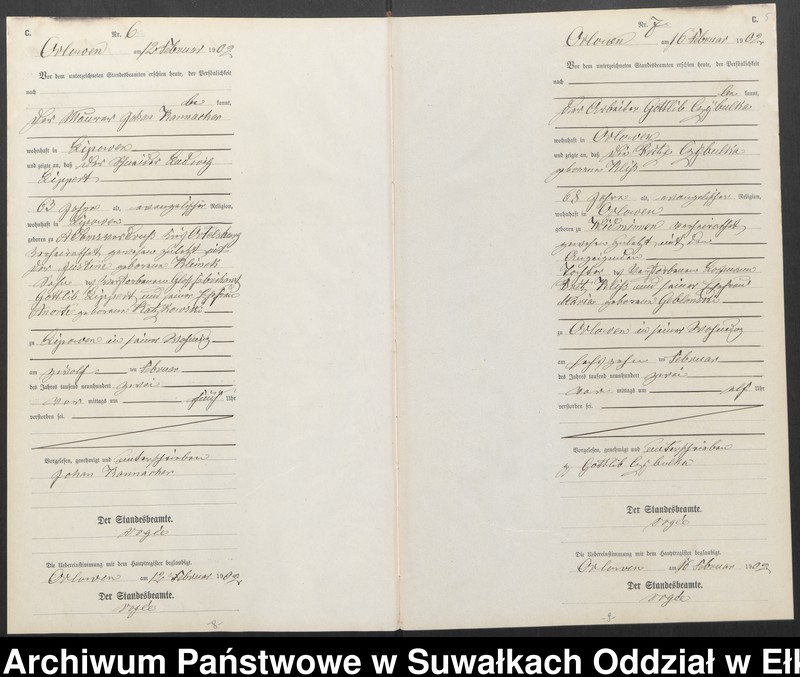 C.
Nr. 6
Orlowen am 12 Februar 1902
Vor dem unterzeichneten Standesbeamten erschien heute, der Persönlichkeit
nach
be kannt,
der Maurer Johan Kannacher
wohnhaft in Lipowen
und zeigte an, daß der Schneider Ludwig
Lippert
63 Jahre alt, evangelischer Religion,
wohnhaft in Lipowen
geboren zu
verheirathet gewesen zuletzt mit
der Justine geborene Klimek
Sohn
Gottlib Lippert und seiner Ehefrau
geborene
zu Lipowen in seiner Wohnung
am zwölf ten Februar
des Jahres tausend neunhundert zwei
Vor mittags um fünf Uhr
verstorben sei.
Vorgelesen, genehmigt und unterschrieben
Johan Kannacher
Der Standesbeamte.
Die Uebereinstimmung mit dem Hauptregister beglaubigt.
Orlowen am 12 Februar 1902
Der Standesbeamte.
-8-
C.
Nr. 7
Orlowen am 16 Februar 1902
Vor dem unterzeichneten Standesbeamten erschien heute, der Persönlichkeit
nach
be kannt,
der Arbeiter Gottlib Czybulka
wohnhaft in Orlowen
und zeigte an, daß die Czybulka
geborene Kliß
68 Jahre alt, evangelischer Religion,
wohnhaft in Orlowen
geboren zu Widminnen verheirathet
gewesen zuletzt mit dem
Anzeigenden
Tochter verstorbenen
Kliß und seiner Ehefrau
geborene
zu Orlowen in seiner Wohnung
am sechszehn ten Februar
des Jahres tausend neunhundert zwei
Vor mittags um elf Uhr
verstorben sei.
Vorgelesen, genehmigt und unterschrieben
Gottlib Czybulka
Der Standesbeamte.
Die Uebereinstimmung mit dem Hauptregister beglaubigt.
Orlowen am 16 Februar 1902
Der Standesbeamte.
-9-
Archiwum Państwowe w Suwałkach Oddział w Ełk